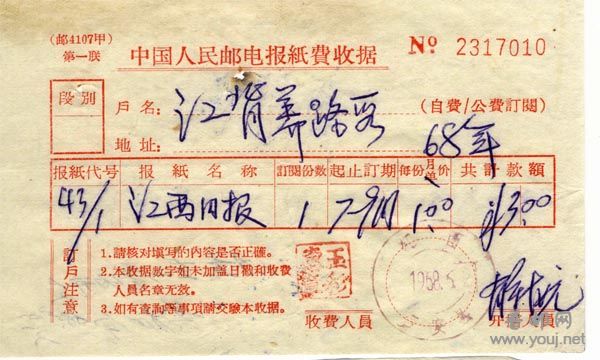 (邮4107甲)
第一联
中国人民邮电报紙費收据
№ 2317010
段別
戶名:
江背养路段
(自費/公費訂閱)
地址:
68年
报紙代号 报紙名称 訂閱份数 起止訂期 每份月季价 共計款額
43/1 江西日报 1 7-9月 1.00 ¥3.00
訂戶注意
1.請核对填写的內容是否正確。
2.本收据数字如未加盖日戳和收費
人員名章无效。
3.如有查詢等事項請交驗本收据。
1968.6
收費人員
www.youj.net